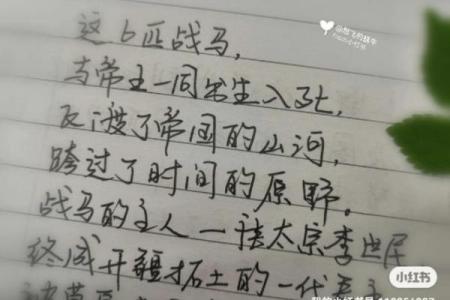 @想飞的蜗牛
这6匹战马,
与帝王一同出生入死,
反渡了帝国的山河,
跨过了时间的原野。
战马的主人一读太宗李世民
终成开疆拓土的一代
小红书